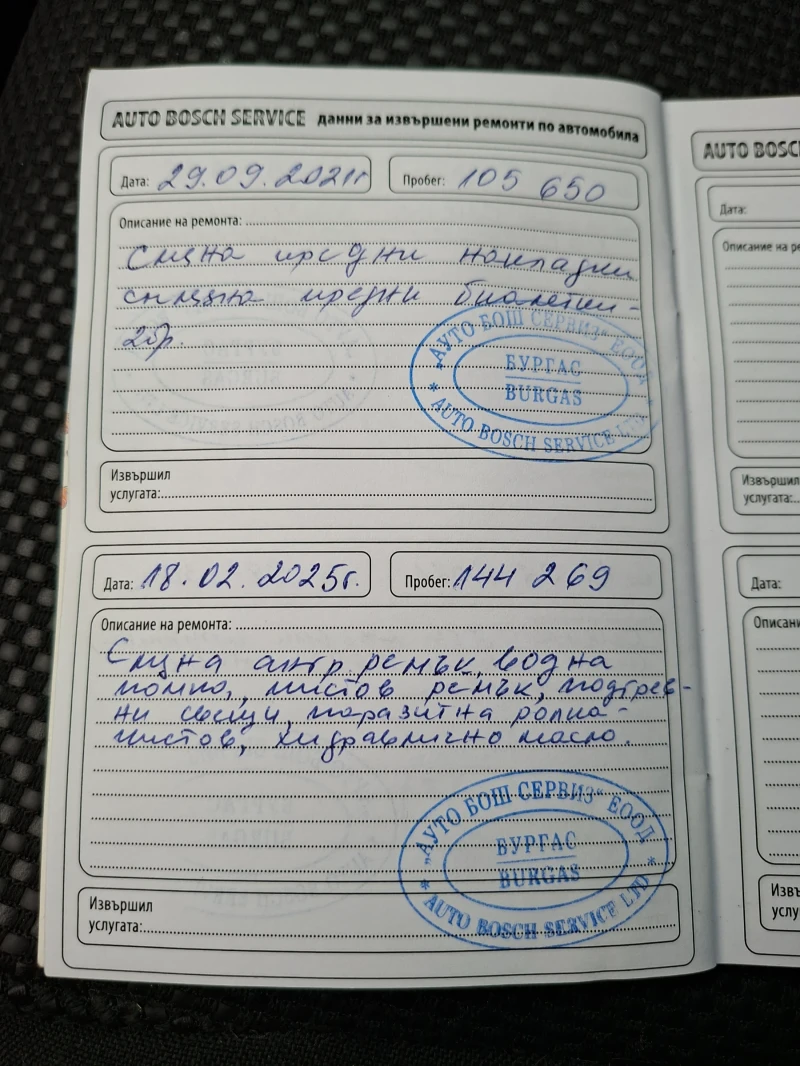 AUTO BOSCH SERVICE данни за извършени ремонти по автомобила
Дата: 29.09.2021г Пробег: 105 650
Описание на ремонта:
Смяна предни накладки
смяна предни биалетки -
2бр.
„АУТО БОШ СЕРВИЗ“ ЕООД
БУРГАС
BURGAS
* AUTO BOSCH SERVICE LTD *
Извършил
услугата:
Дата: 18.02.2025г. Пробег: 144 269
Описание на ремонта:
Смяна анг. ремък, водна
помпа, пистов ремък, подгрев-
ни свещи, паразитна ролка-
пистов, хидравлично масло.
„АУТО БОШ СЕРВИЗ“ ЕООД
БУРГАС
BURGAS
* AUTO BOSCH SERVICE LTD *
Извършил
услугата:
AUTO BOSC
Дата:
Описание на ре
Извършил
услугата:
Дата:
Описани
Извъ
услу